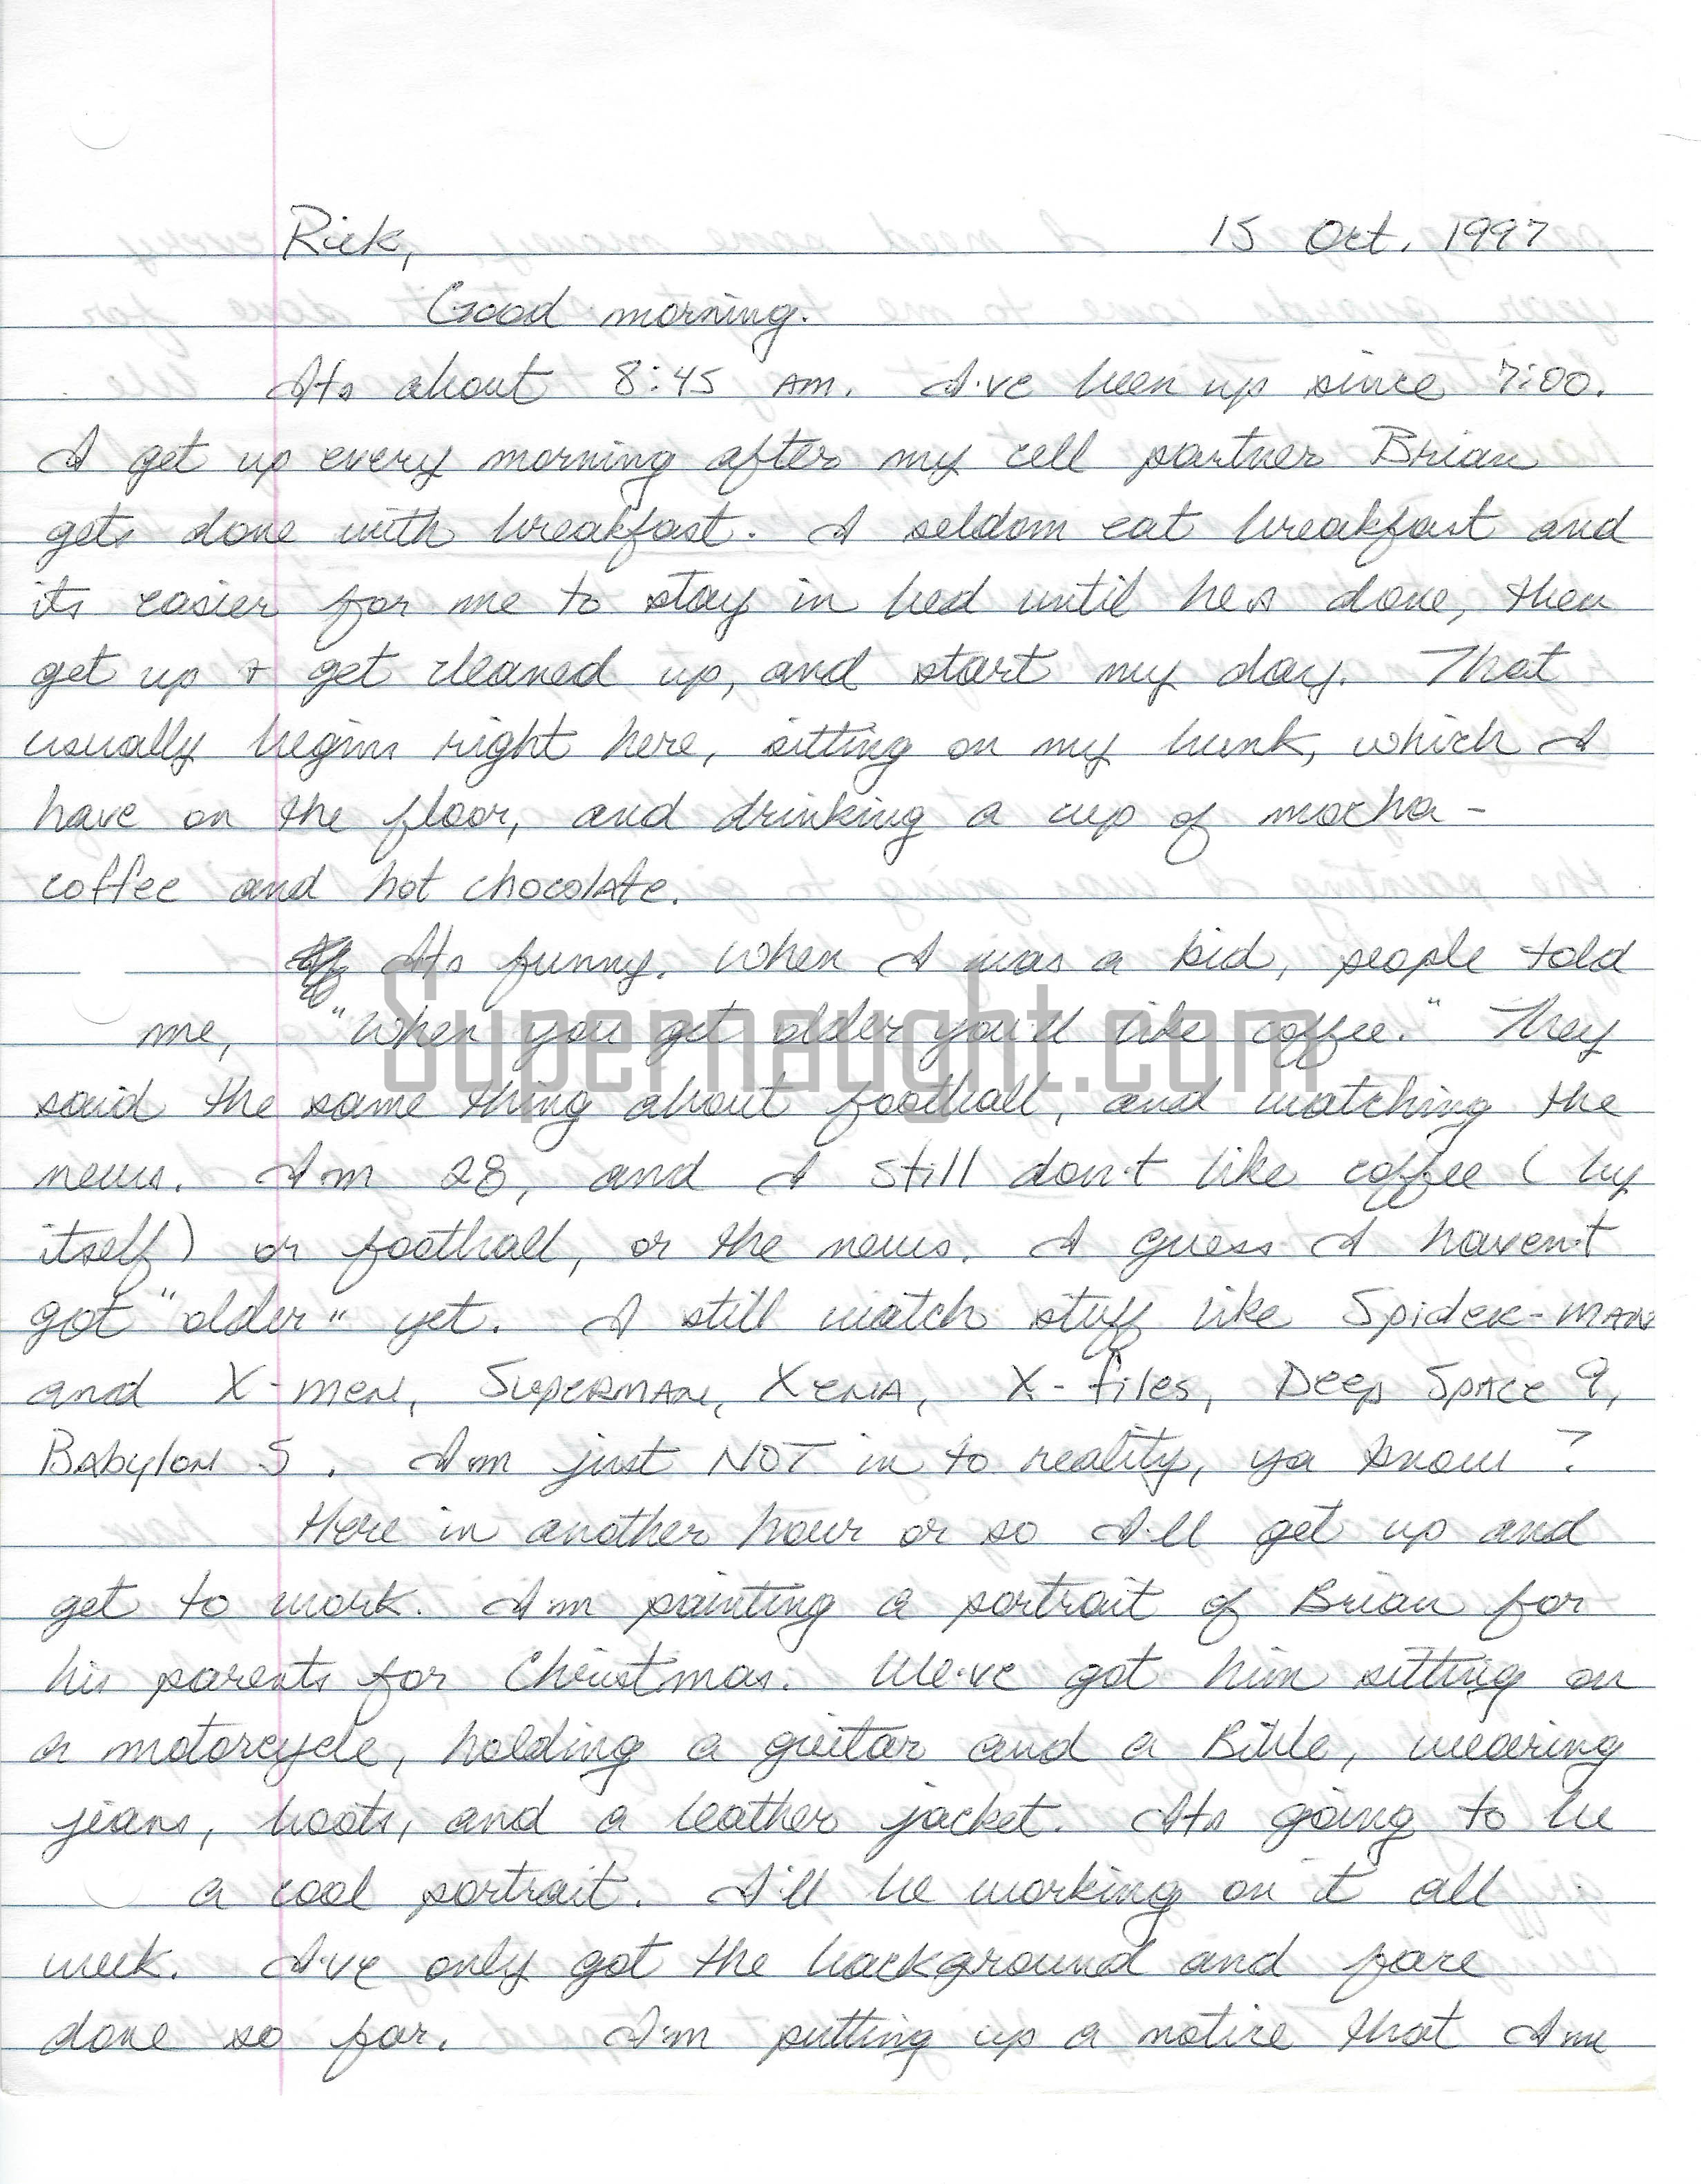 Rick, 15 Oct. 1997
Good morning.
Its about 8:45 AM. I've been up since 7:00.
I get up every morning after my cell partner Brian
gets done with breakfast. I seldom eat breakfast and
its easier for me to stay in bed until hes done, then
get up + get cleaned up, and start my day. That
usually begins right here, sitting on my bunk, which I
have on the floor, and drinking a cup of mocha -
coffee and hot chocolate.
Its funny. When I was a kid, people told
me, "When you get older you'll like coffee." They
said the same thing about football, and watching the
news. I'm 28, and I still don't like coffee (by
itself) or football, or the news. I guess I haven't
got "older" yet. I still watch stuff like Spider-MAN
and X-MEN, SUPERMAN, XENA, X-files, Deep Space 9,
Babylon 5. I'm just NOT in to reality, ya know?
Here in another hour or so I'll get up and
get to work. I'm painting a portrait of Brian for
his parents for Christmas. We've got him sitting on
a motorcycle, holding a guitar and a Bible, wearing
jeans, boots, and a leather jacket. Its going to be
a cool portrait. I'll be working on it all
week. I've only got the background and face
done so far. I'm putting up a notice that I'm
Supernaught.com